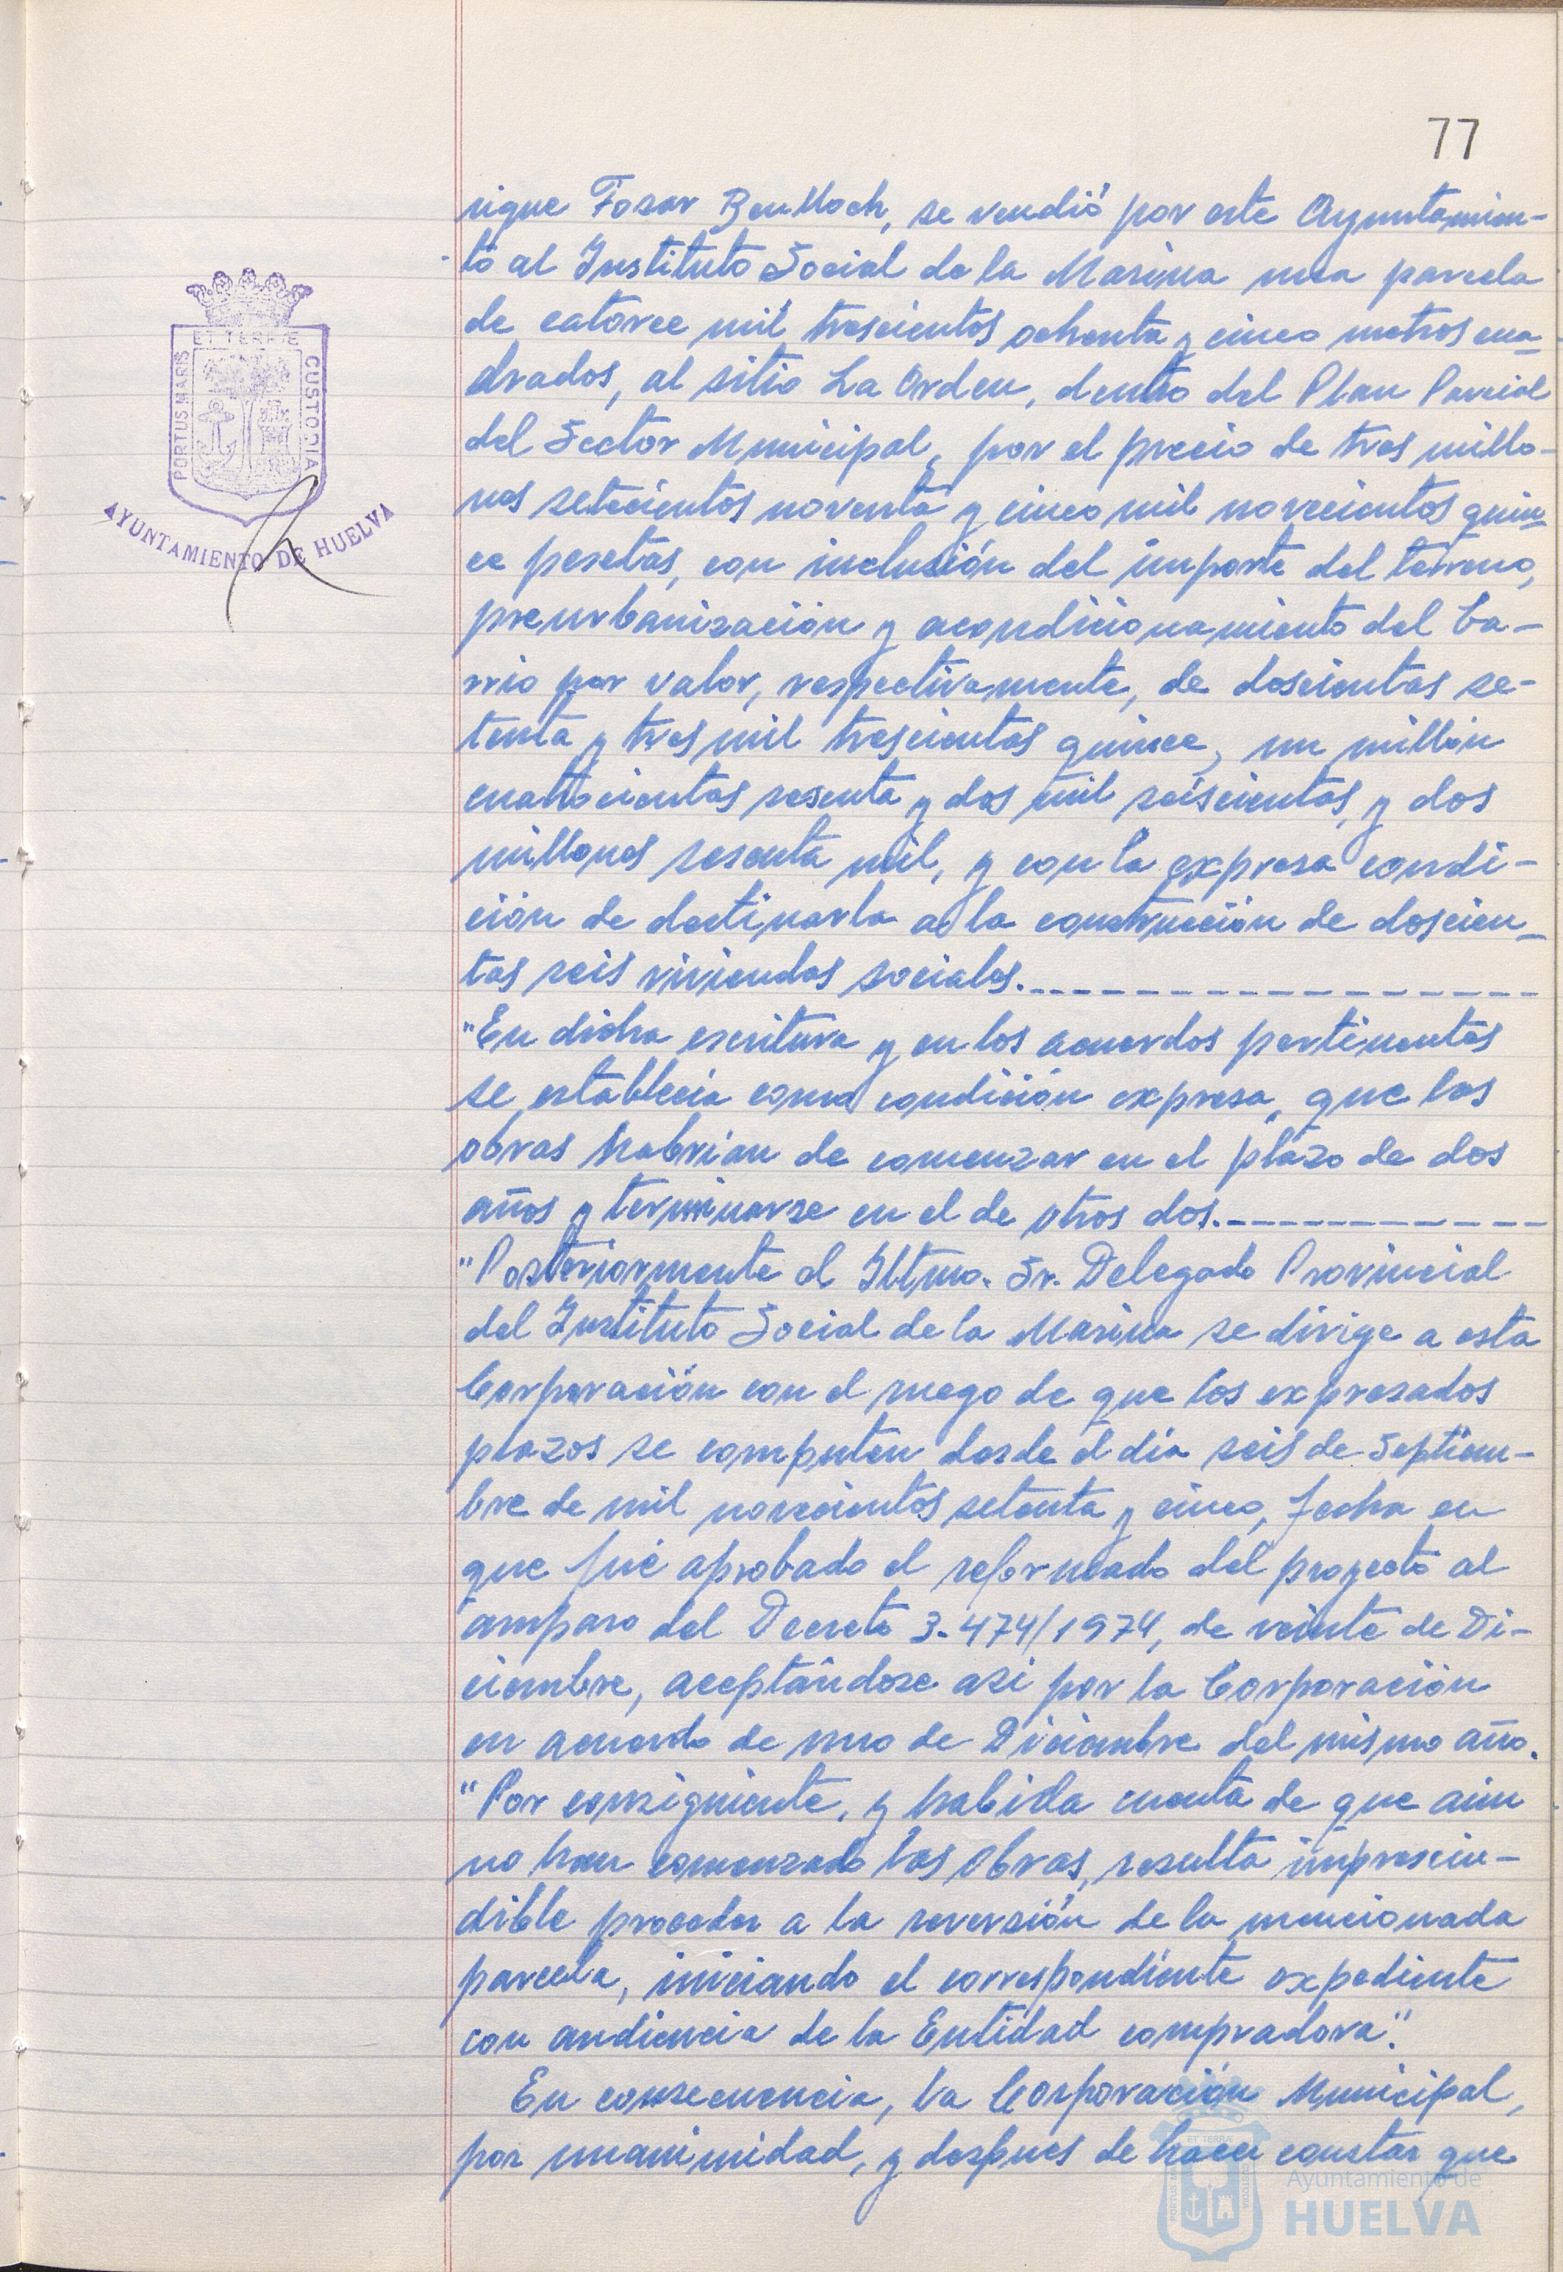 77
rique Fosar Benlloch, se vendió por este Ayuntamien-
to al Instituto Social de la Marina una parcela
de catorce mil trescientos ochenta y cinco metros cua-
drados, al sitio La Orden, dentro del Plan Parcial
del Sector Municipal, por el precio de tres millo-
nes setecientos noventa y cinco mil novecientos quin-
ce pesetas, con inclusión del importe del terreno,
preurbanización y acondicionamiento del ba-
rrio por valor, respectivamente, de doscientas se-
tenta y tres mil trescientas quince, un millón
cuatrocientas sesenta y dos mil seiscientas, y dos
millones sesenta mil, y con la expresa condi-
ción de destinarla a la construcción de doscien-
tas seis viviendas sociales.
"En dicha escritura y en los acuerdos pertinentes
se establecía como condición expresa, que las
obras habrían de comenzar en el plazo de dos
años y terminarse en el de otros dos.
"Posteriormente el Iltmo. Sr. Delegado Provincial
del Instituto Social de la Marina se dirige a esta
Corporación con el ruego de que los expresados
plazos se computen desde el día seis de Septiem-
bre de mil novecientos setenta y cinco, fecha en
que fué aprobado el reformado del proyecto al
amparo del Decreto 3.474/1974, de veinte de Di-
ciembre, aceptándose asi por la Corporación
en acuerdo de uno de Diciembre del mismo año.
"Por consiguiente, y habida cuenta de que aún
no han comenzado las obras, resulta imprescin-
dible proceder a la reversión de la mencionada
parcela, iniciando el correspondiente expediente
con audiencia de la Entidad compradora".
En consecuencia, la Corporación Municipal,
por unanimidad, y despues de hacer constar que
PORTUS MARIS
ET TERRÆ
CUSTODIA
AYUNTAMIENTO DE HUELVA
Ayuntamiento de
HUELVA